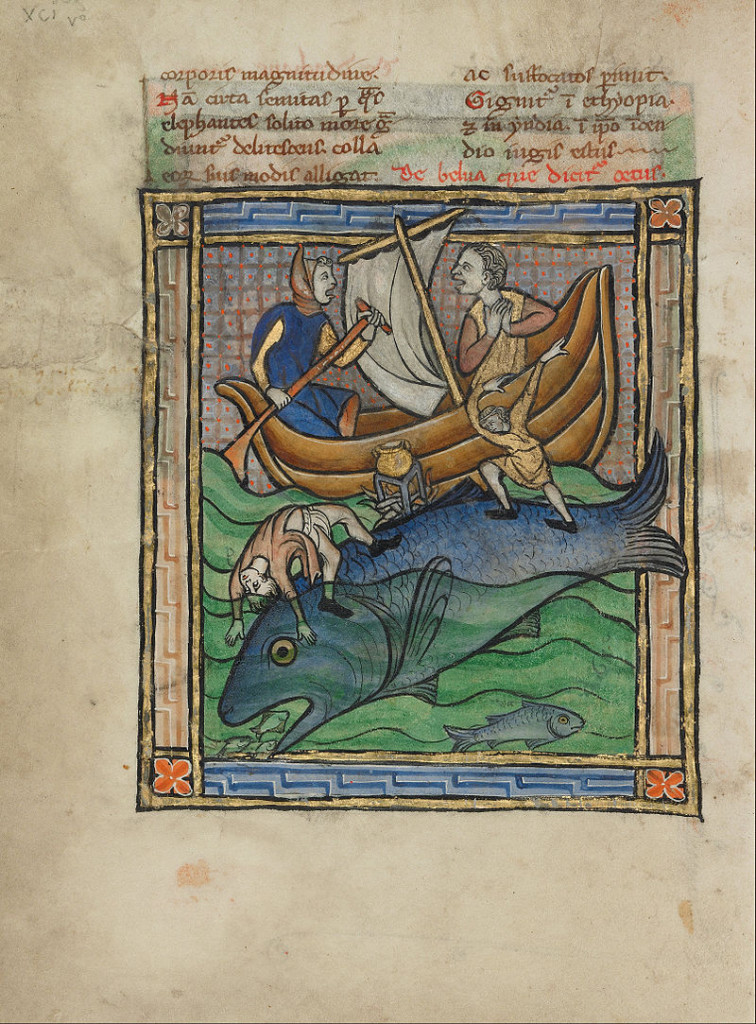 XCI vo
corporis magnitudine.
Nā circa semitas p q̄s
elephantes solito more g̃
diunt᷑ delitescens. colla
eoꝝ suis modis alligat.
ac suffocatos pimit.
Gignit᷑ ī ethyopia.
⁊ in yndia. ī ip̄o īcen
dio iugis estus.
De belua que dicit᷑ cetus.